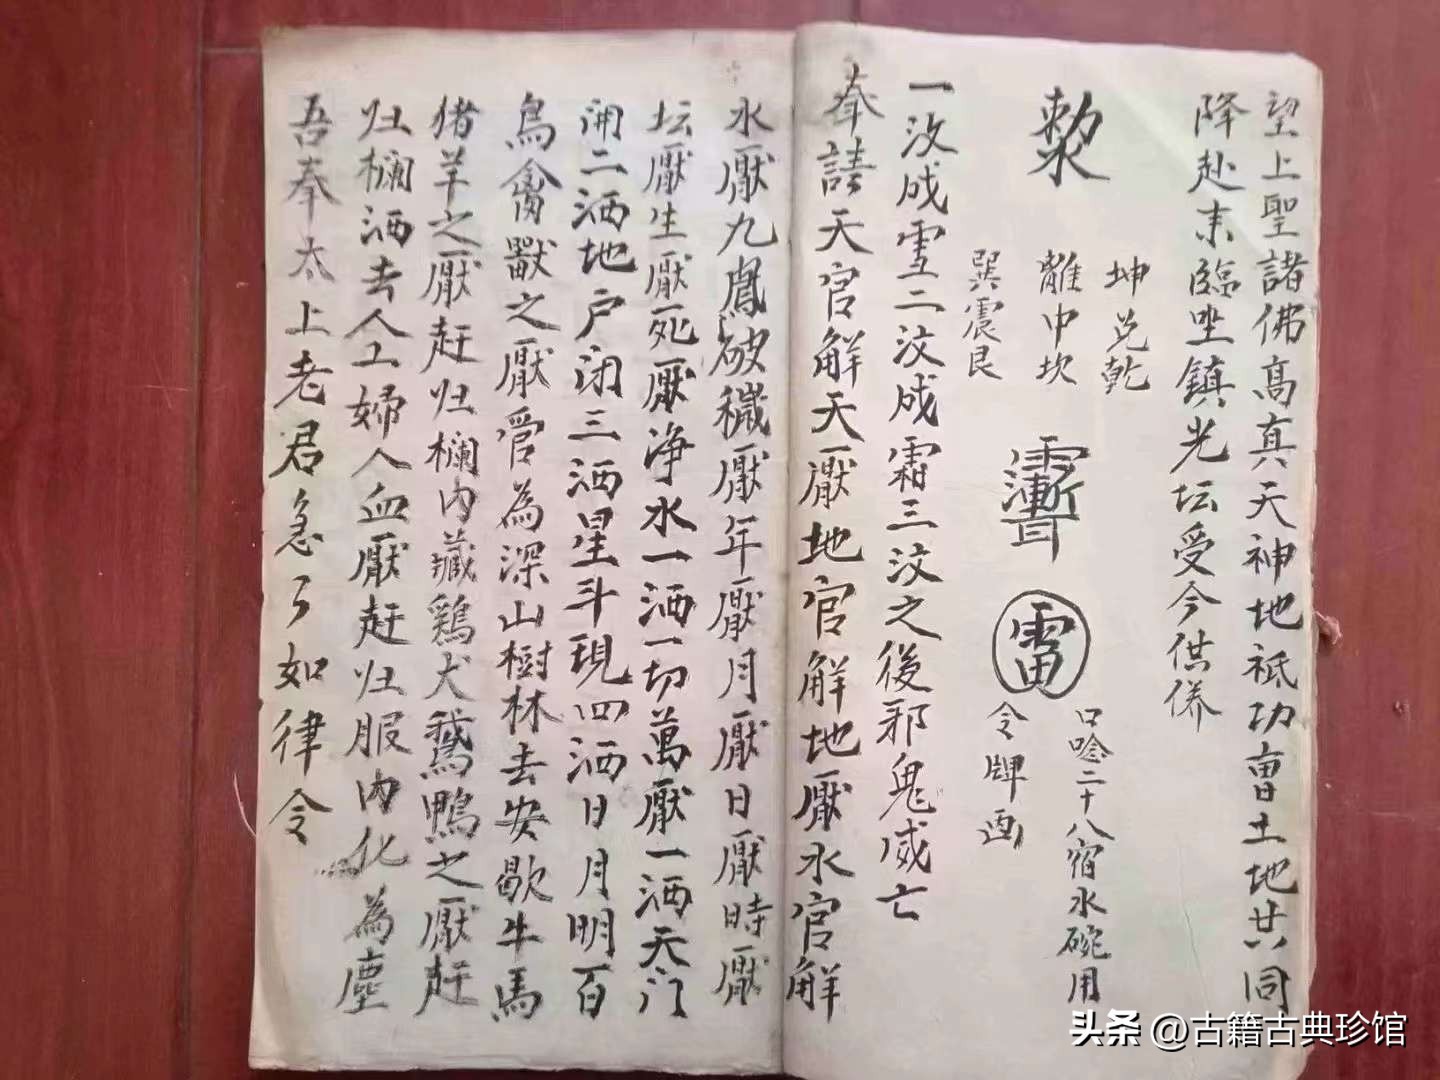 望上聖諸佛高真天神地祇功曺土地廿共同
降赴来臨坐鎮光坛受今供养
坤兑乾
離中坎
巽震艮
雷
口唸二十八宿水碗用
令牌画
一汶成雪二汶成霜三汶之後邪鬼威亡
奉請天官解天厭地官解地厭水官解
水厭九鳳破穢厭年厭月厭日厭時厭
坛厭生厭死厭净水一洒一切萬厭一洒天门
闭二洒地户闭三洒星斗現四洒日月明百
鳥禽獸之厭管為深山樹林去安歇牛馬
猪羊之厭赶归欄内藏鷄犬鵝鴨之厭赶
归欄洒去人工婦人血厭赶归服内化為塵
吾奉太上老君急了如律令
头条 @古籍古典珍馆